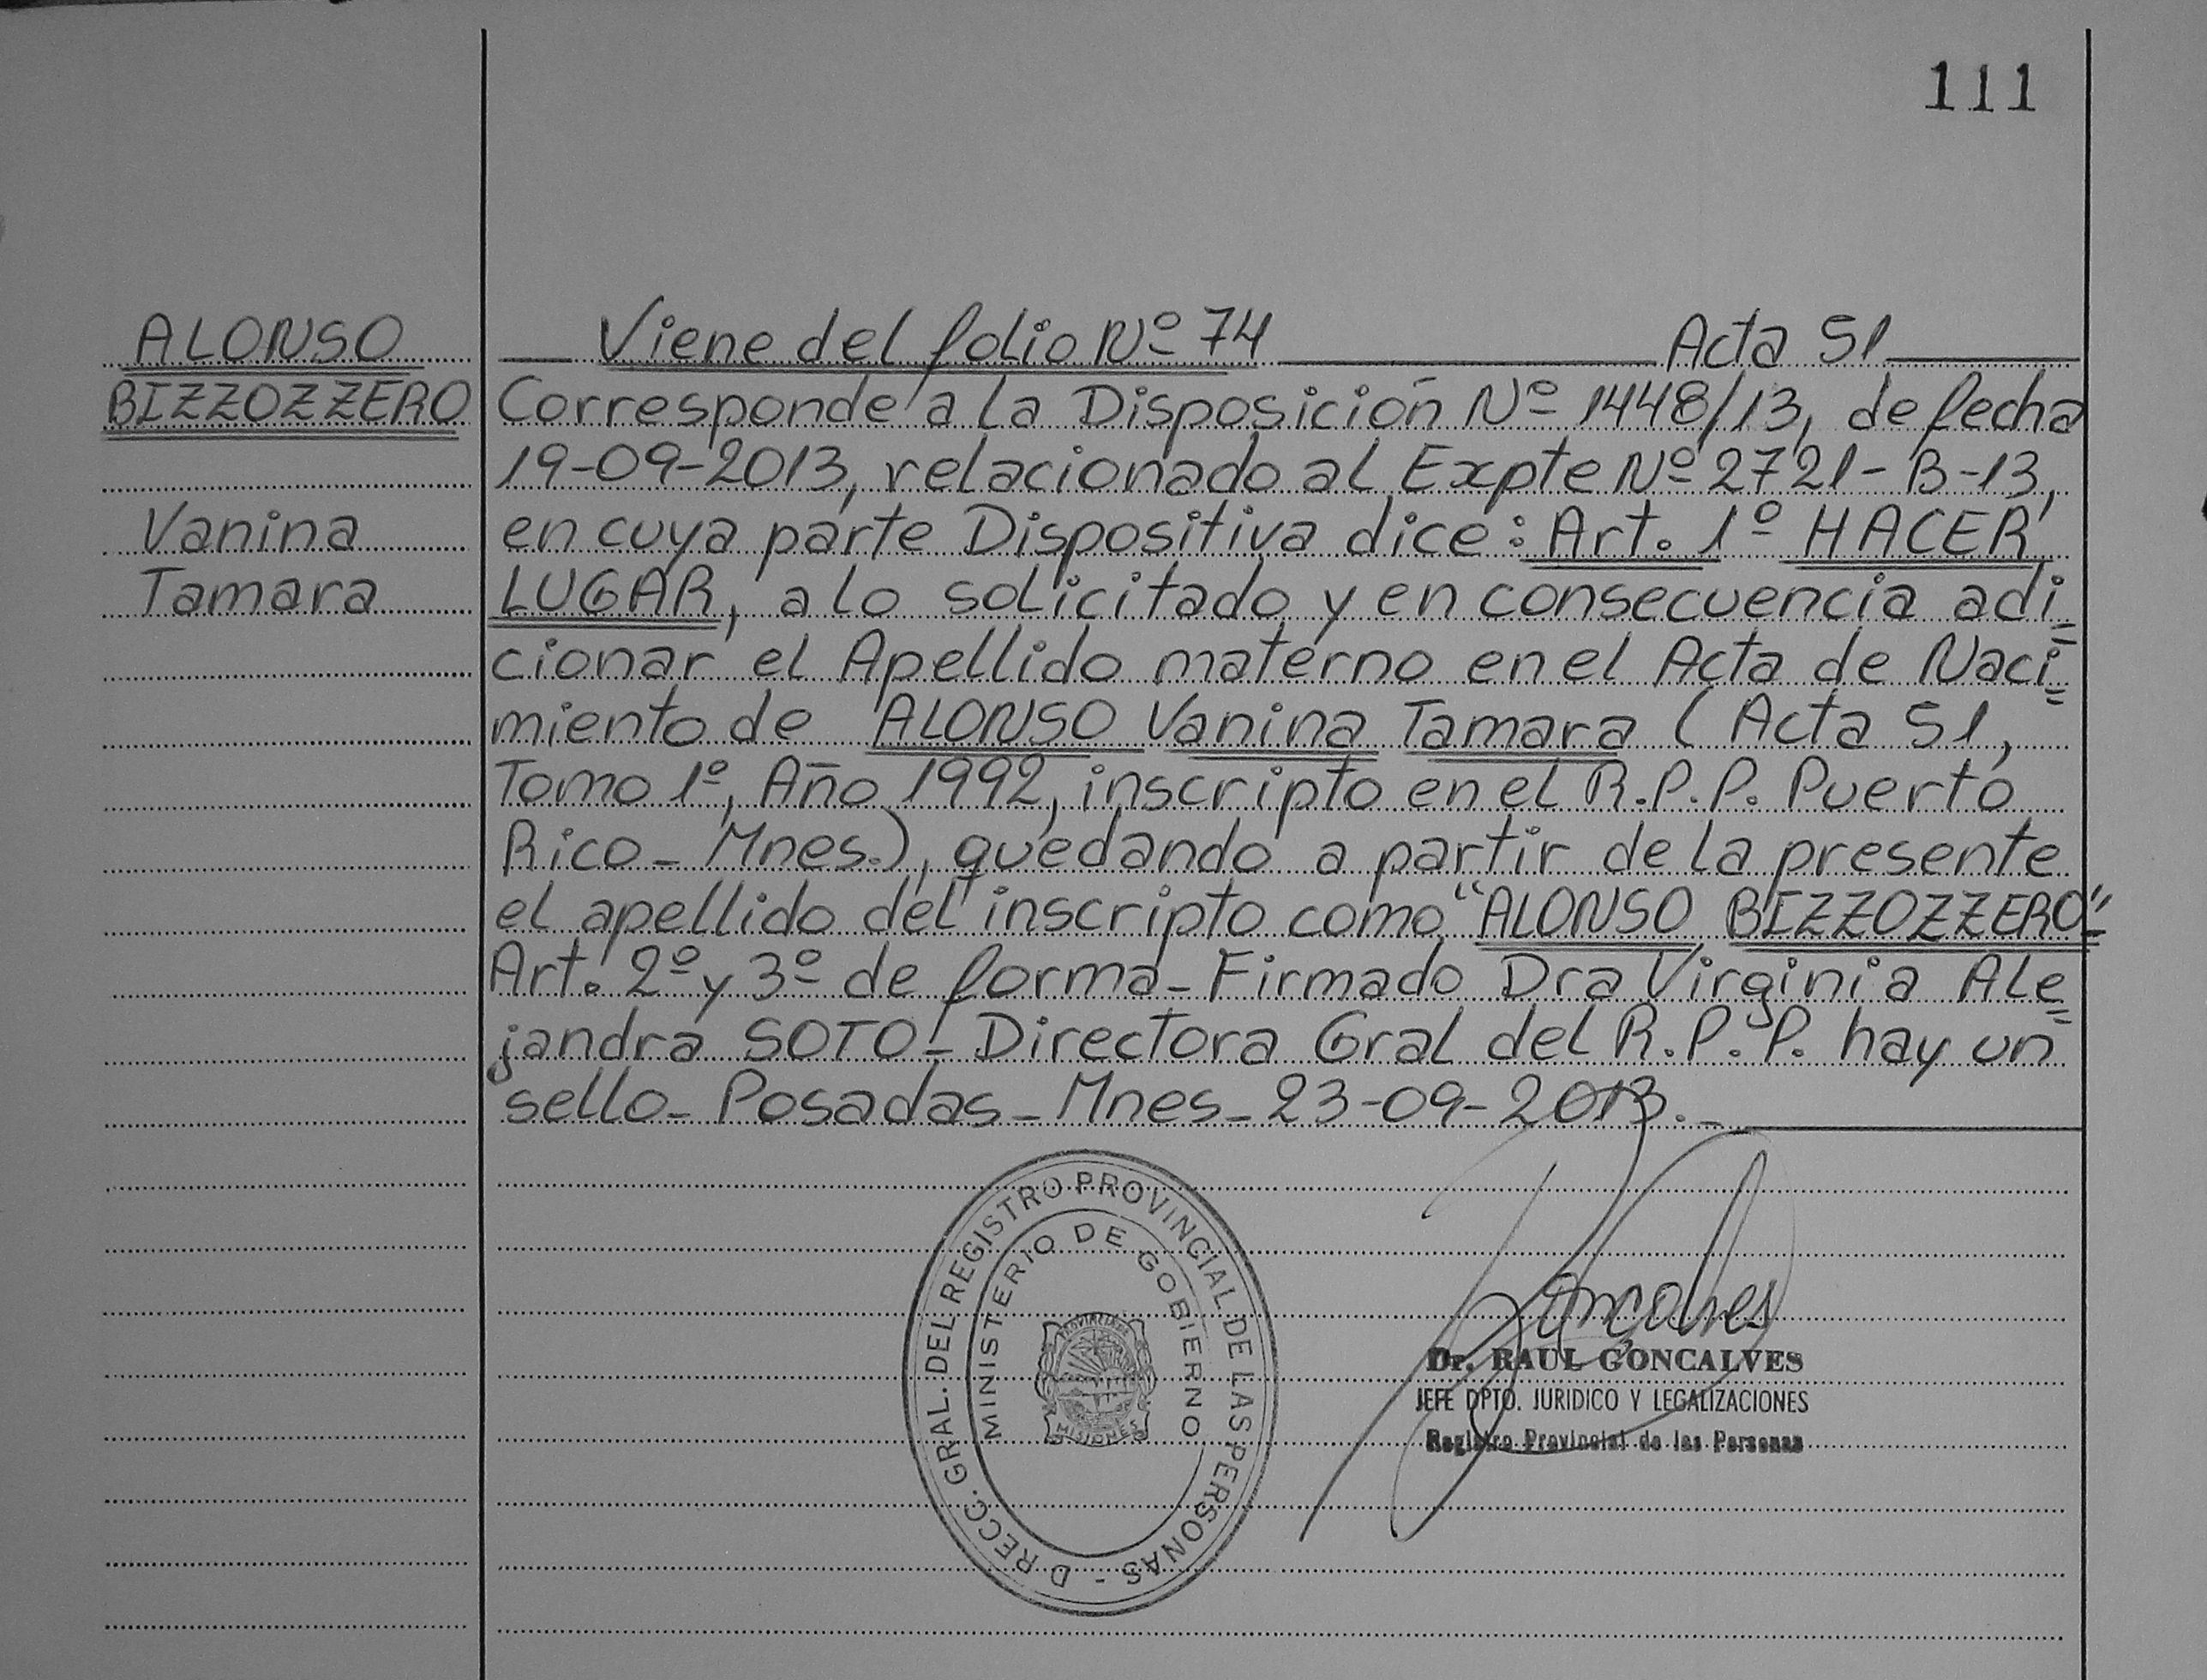 111
ALONSO
BIZZOZZERO
Vanina
Tamara
Viene del folio Nº 74 Acta 51
Corresponde a la Disposición Nº 1448/13, de fecha
19-09-2013, relacionado al Expte Nº 2721-B-13,
en cuya parte Dispositiva dice: Art. 1º HACER
LUGAR, a lo solicitado y en consecuencia adi=
cionar el Apellido materno en el Acta de Naci=
miento de ALONSO Vanina Tamara (Acta 51,
Tomo 1º, Año 1992, inscripto en el R.P.P. Puerto
Rico - Mnes.), quedando a partir de la presente
el apellido del inscripto como "ALONSO BIZZOZZERO"-
Art. 2º y 3º de forma - Firmado Dra Virginia Ale=
jandra SOTO - Directora Gral del R.P.P. hay un
sello - Posadas - Mnes - 23-09-2013.-
D RECC. GRAL. DEL REGISTRO PROVINCIAL DE LAS PERSONAS -
MINISTERIO DE GOBIERNO
PROVINCIA DE
MISIONES
Goncalves
Dr. RAUL GONCALVES
JEFE DPTO. JURIDICO Y LEGALIZACIONES
Registro Provincial de las Personas